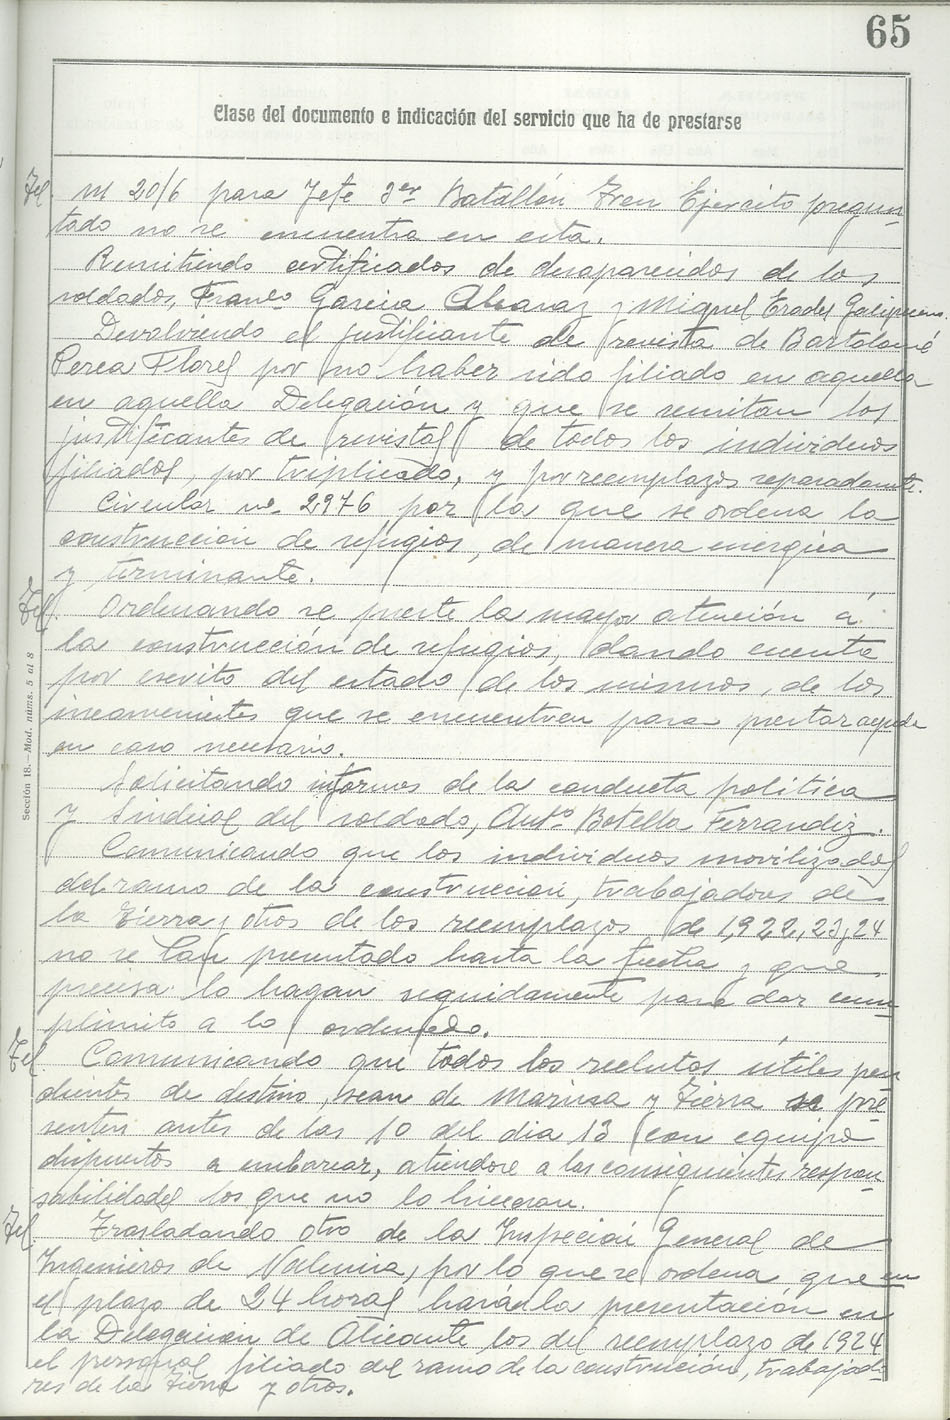 65
Clase del documento e indicación del servicio que ha de prestarse
Tel. nº 20/6 para Jefe 3er Batallón Tren Ejército pregun-
tado no se encuentra en esta.
Remitiendo certificados de desaparecidos de los
soldados, Franco Garcia Alcaraz y Miguel Erades
Devolviendo el justificante de revista de Bartolomé
Perea Flores por no haber sido filiado en aquella
en aquella Delegación y que se remitan los
justificantes de revistas de todos los individuos
filiados, por triplicado, y por reemplazos separadamte.
Circular nº 2976 por la que se ordena la
construcción de refugios, de manera energica
y terminante.
Tel. Ordenando se preste la mayor atención a
la construcción de refugios, dando cuenta
por escrito del estado de los mismos, de los
inconvenientes que se encuentren para prestar ayuda
en caso necesario.
Solicitando informes de la conducta politica
y sindical del soldado, Antº Botella Ferrandiz.
Comunicando que los individuos movilizados
del ramo de la construccion, trabajadores de
la Tierra y otros de los reemplazos de 1,922, 23 y 24
no se han presentado hasta la fecha y que
precisa lo hagan seguidamente para dar cum-
plimito a lo ordenado.
Tel. Comunicando que todos los reclutas utiles pen
dientes de destino, sean de Marina y Tierra se pre
senten antes de las 10 del dia 13 con equipo
dispuestos a embarcar, atiendose a las consiguientes respon-
sabilidades los que no lo hicieran.
Tel. Trasladando otro de la Inspeción General de
Ingenieros de Valencia, por lo que se ordena que en
el plazo de 24 horas harán la presentación en
la Delegacion de Alicante los del reemplazo de 1924
el personal filiado del ramo de la construcción, trabajado-
res de la Tierra y otros.
Sección 18.—Mod. núms. 5 al 8